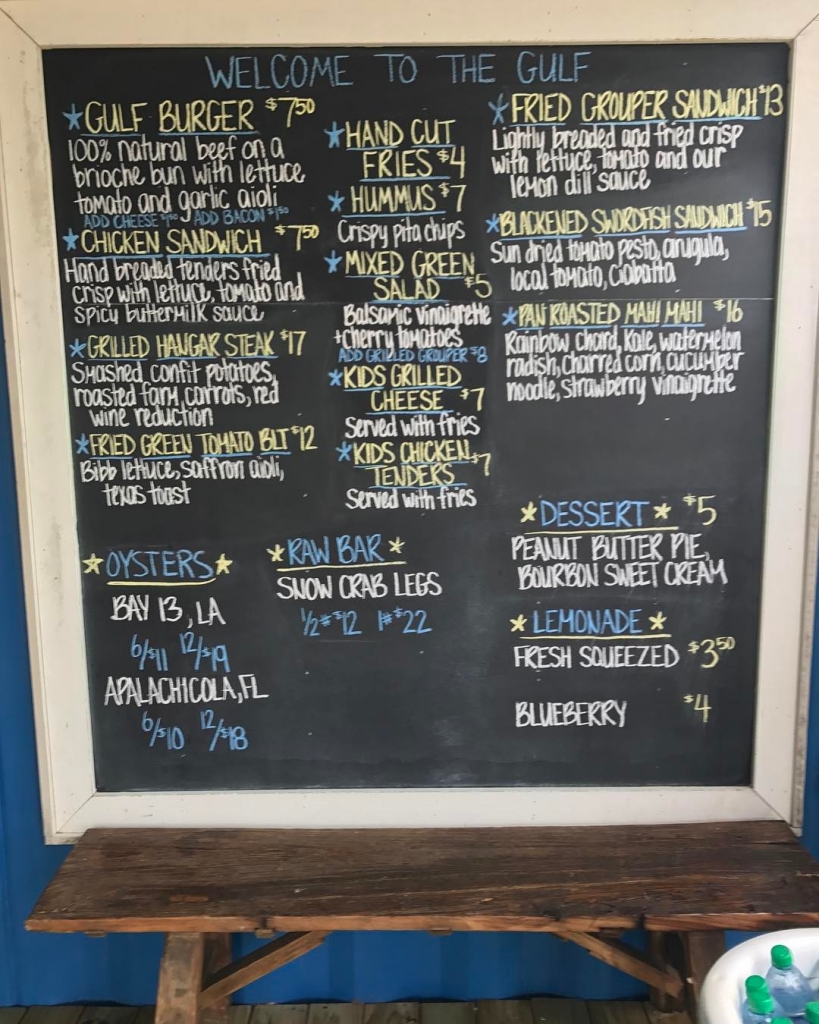 WELCOME TO THE GULF
*GULF BURGER $7.50
100% natural beef on a
brioche bun with lettuce
tomato and garlic aioli
ADD CHEESE $1.50 ADD BACON $1.50
*CHICKEN SANDWICH $7.50
Hand breaded tenders fried
crisp with lettuce, tomato and
spicy buttermilk sauce
*GRILLED HANGAR STEAK $17
Smashed confit potatoes,
roasted farm carrots, red
wine reduction
*FRIED GREEN TOMATO BLT $12
Bibb lettuce, saffron aioli,
texas toast
*HAND CUT
FRIES $4
*HUMMUS $7
Crispy pita chips
*MIXED GREEN
SALAD $5
Balsamic vinaigrette
+cherry tomatoes
ADD GRILLED GROUPER $8
*KIDS GRILLED
CHEESE $7
Served with fries
*KIDS CHICKEN
TENDERS $7
Served with fries
*FRIED GROUPER SANDWICH $13
Lightly breaded and fried crisp
with lettuce, tomato and our
lemon dill sauce
*BLACKENED SWORDFISH SANDWICH $15
Sun dried tomato pesto, arugula,
local tomato, ciabatta
*PAN ROASTED MAHI MAHI $16
Rainbow chard, kale, watermelon
radish, charred corn, cucumber
noodle, strawberry vinaigrette
*OYSTERS*
BAY 13, LA
6/$11 12/$19
APALACHICOLA, FL
6/$10 12/$18
*RAW BAR*
SNOW CRAB LEGS
1/2# $12 1# $22
*DESSERT* $5
PEANUT BUTTER PIE,
BOURBON SWEET CREAM
*LEMONADE*
FRESH SQUEEZED $3.50
BLUEBERRY $4